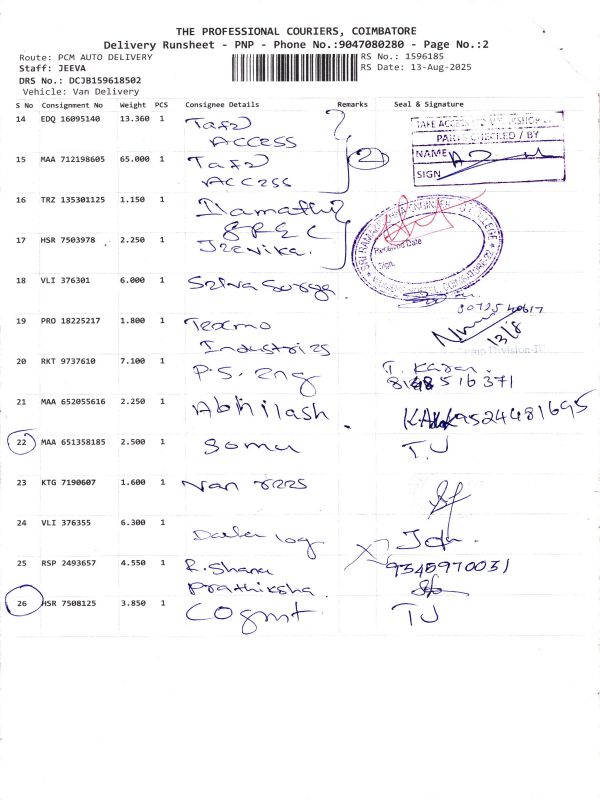 THE PROFESSIONAL COURIERS, COIMBATORE
Delivery Runsheet - PNP - Phone No.:9047080280 - Page No.:2
Route: PCM AUTO DELIVERY
RS No.: 1596185
Staff: JEEVA
RS Date: 13-Aug-2025
DRS No.: DCJB159618502
Vehicle: Van Delivery
S No Consignment No Weight PCS Consignee Details Remarks Seal & Signature
14 EDQ 16095140 13.360 1 Tafe
ACCESS
PARTS CHECKED / BY
NAME
SIGN
15 MAA 712198605 65.000 1 Tafe 2
ACCESS
16 TRZ 135301125 1.150 1
SREC
17 HSR 7503978 2.250 1 Jeevika.
Received Date
Sign.
18 VLI 376301 6.000 1 Sriva Surya.
19 PRO 18225217 1.800 1 Texmo
Industries
13/8
20 RKT 9737610 7.100 1 P.S. Eng T. Karan
21 MAA 652055616 2.250 1 Abhilash. 9524481695
22 MAA 651358185 2.500 1 Somu TJ
23 KTG 7190607 1.600 1
24 VLI 376355 6.300 1 Data log
25 RSP 2493657 4.550 1 R. Shana 9345970031
Prathiksha.
26 HSR 7508125 3.850 1 Cognt. TJ